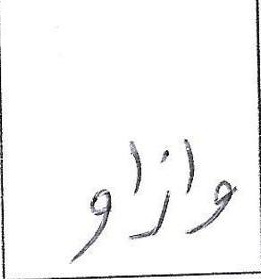 وازاو